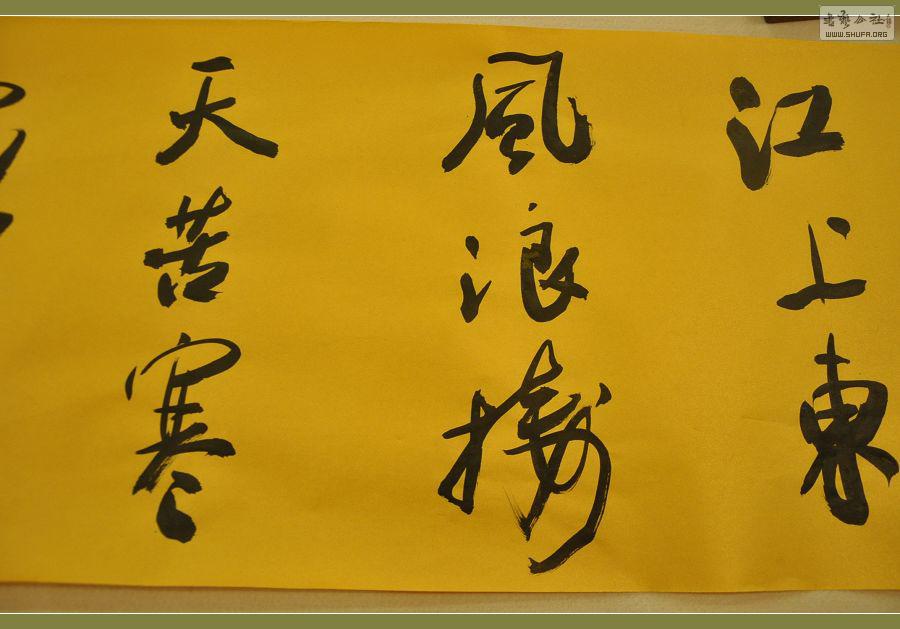 書藝公社
WWW.SHUFA.ORG
江上東
風浪
天苦寒